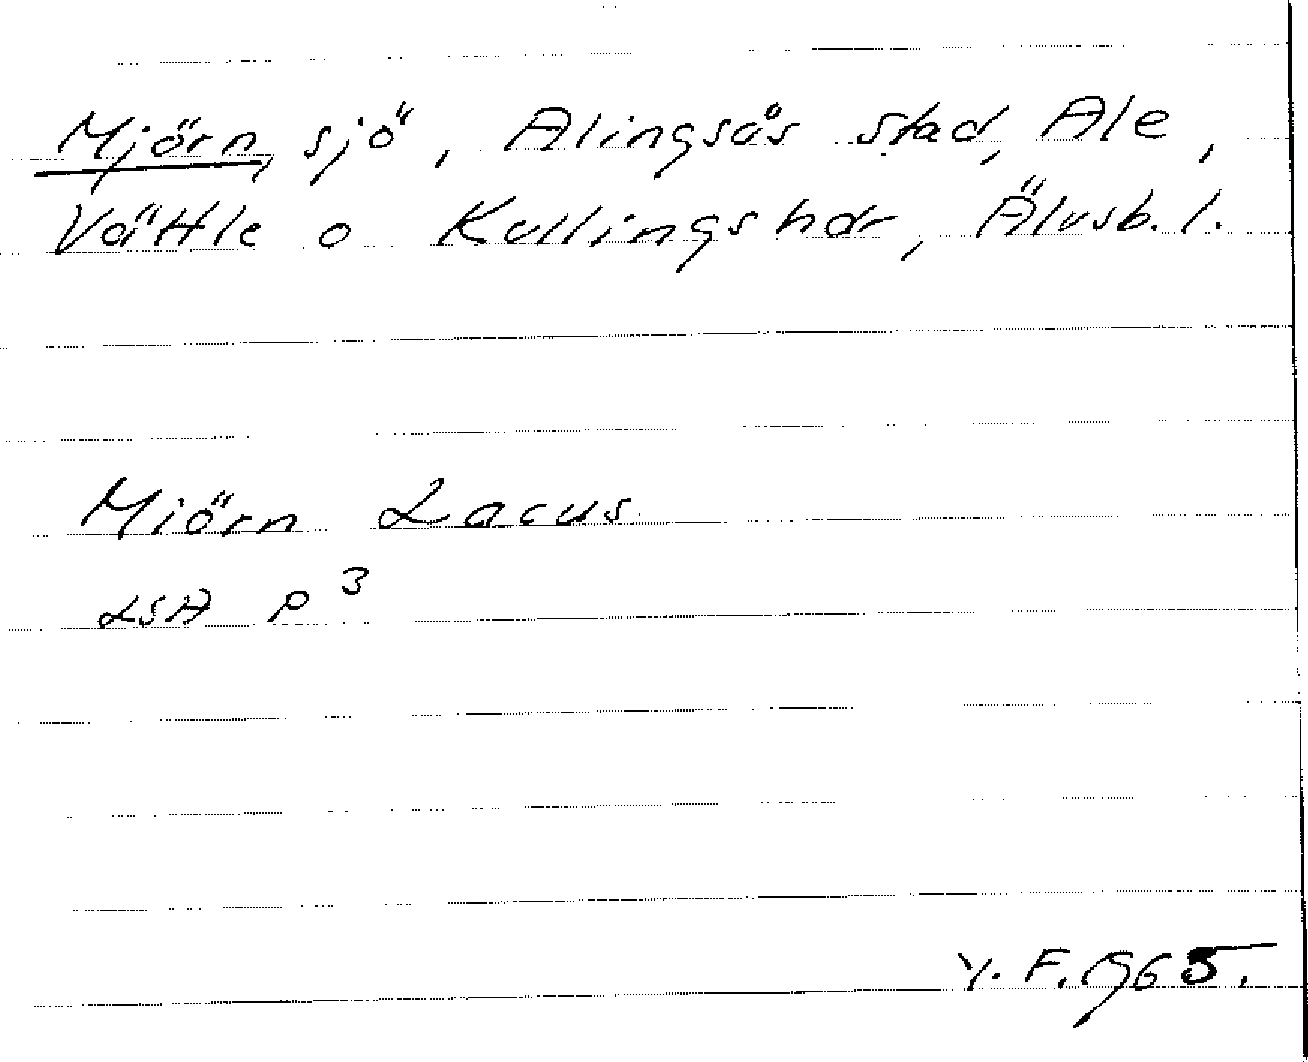 Mjörn, sjö, Alingsås stad, Ale,
Vättle o Kullings hdr, Älvsb. l.
Miörn Lacus
LSA P³
Y. F. 1965.